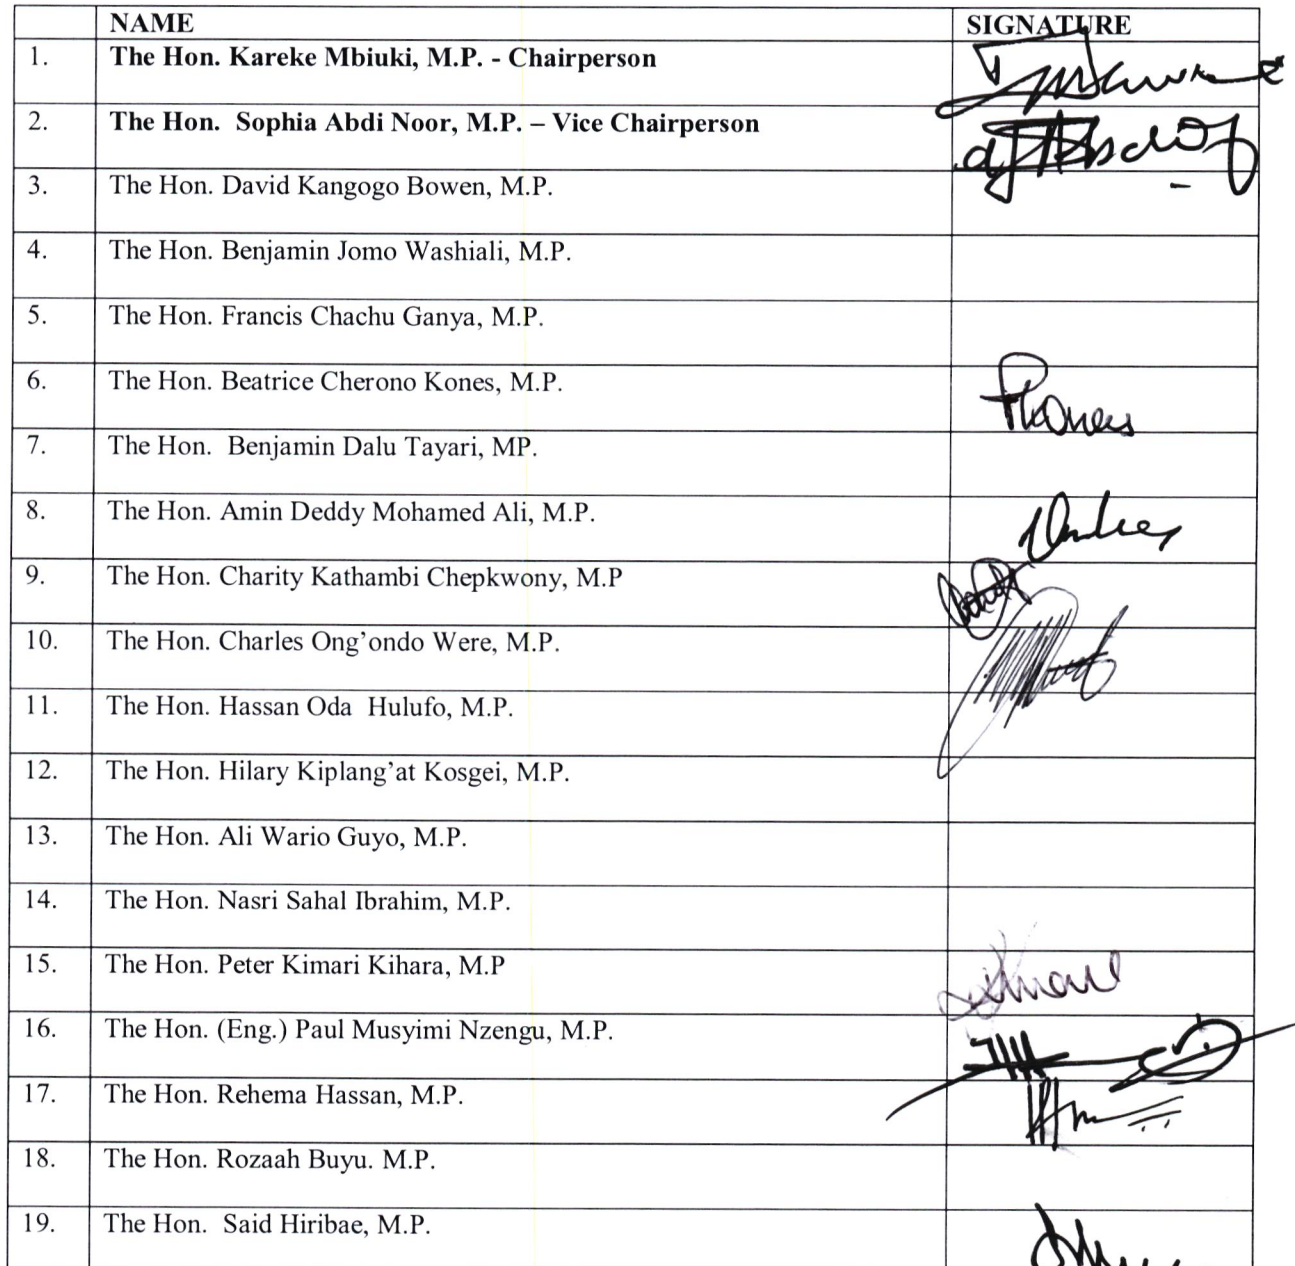 NAME SIGNATURE
1. The Hon. Kareke Mbiuki, M.P. - Chairperson
2. The Hon. Sophia Abdi Noor, M.P. – Vice Chairperson
3. The Hon. David Kangogo Bowen, M.P.
4. The Hon. Benjamin Jomo Washiali, M.P.
5. The Hon. Francis Chachu Ganya, M.P.
6. The Hon. Beatrice Cherono Kones, M.P.
7. The Hon. Benjamin Dalu Tayari, MP.
8. The Hon. Amin Deddy Mohamed Ali, M.P.
9. The Hon. Charity Kathambi Chepkwony, M.P
10. The Hon. Charles Ong’ondo Were, M.P.
11. The Hon. Hassan Oda Hulufo, M.P.
12. The Hon. Hilary Kiplang’at Kosgei, M.P.
13. The Hon. Ali Wario Guyo, M.P.
14. The Hon. Nasri Sahal Ibrahim, M.P.
15. The Hon. Peter Kimari Kihara, M.P
16. The Hon. (Eng.) Paul Musyimi Nzengu, M.P.
17. The Hon. Rehema Hassan, M.P.
18. The Hon. Rozaah Buyu. M.P.
19. The Hon. Said Hiribae, M.P.